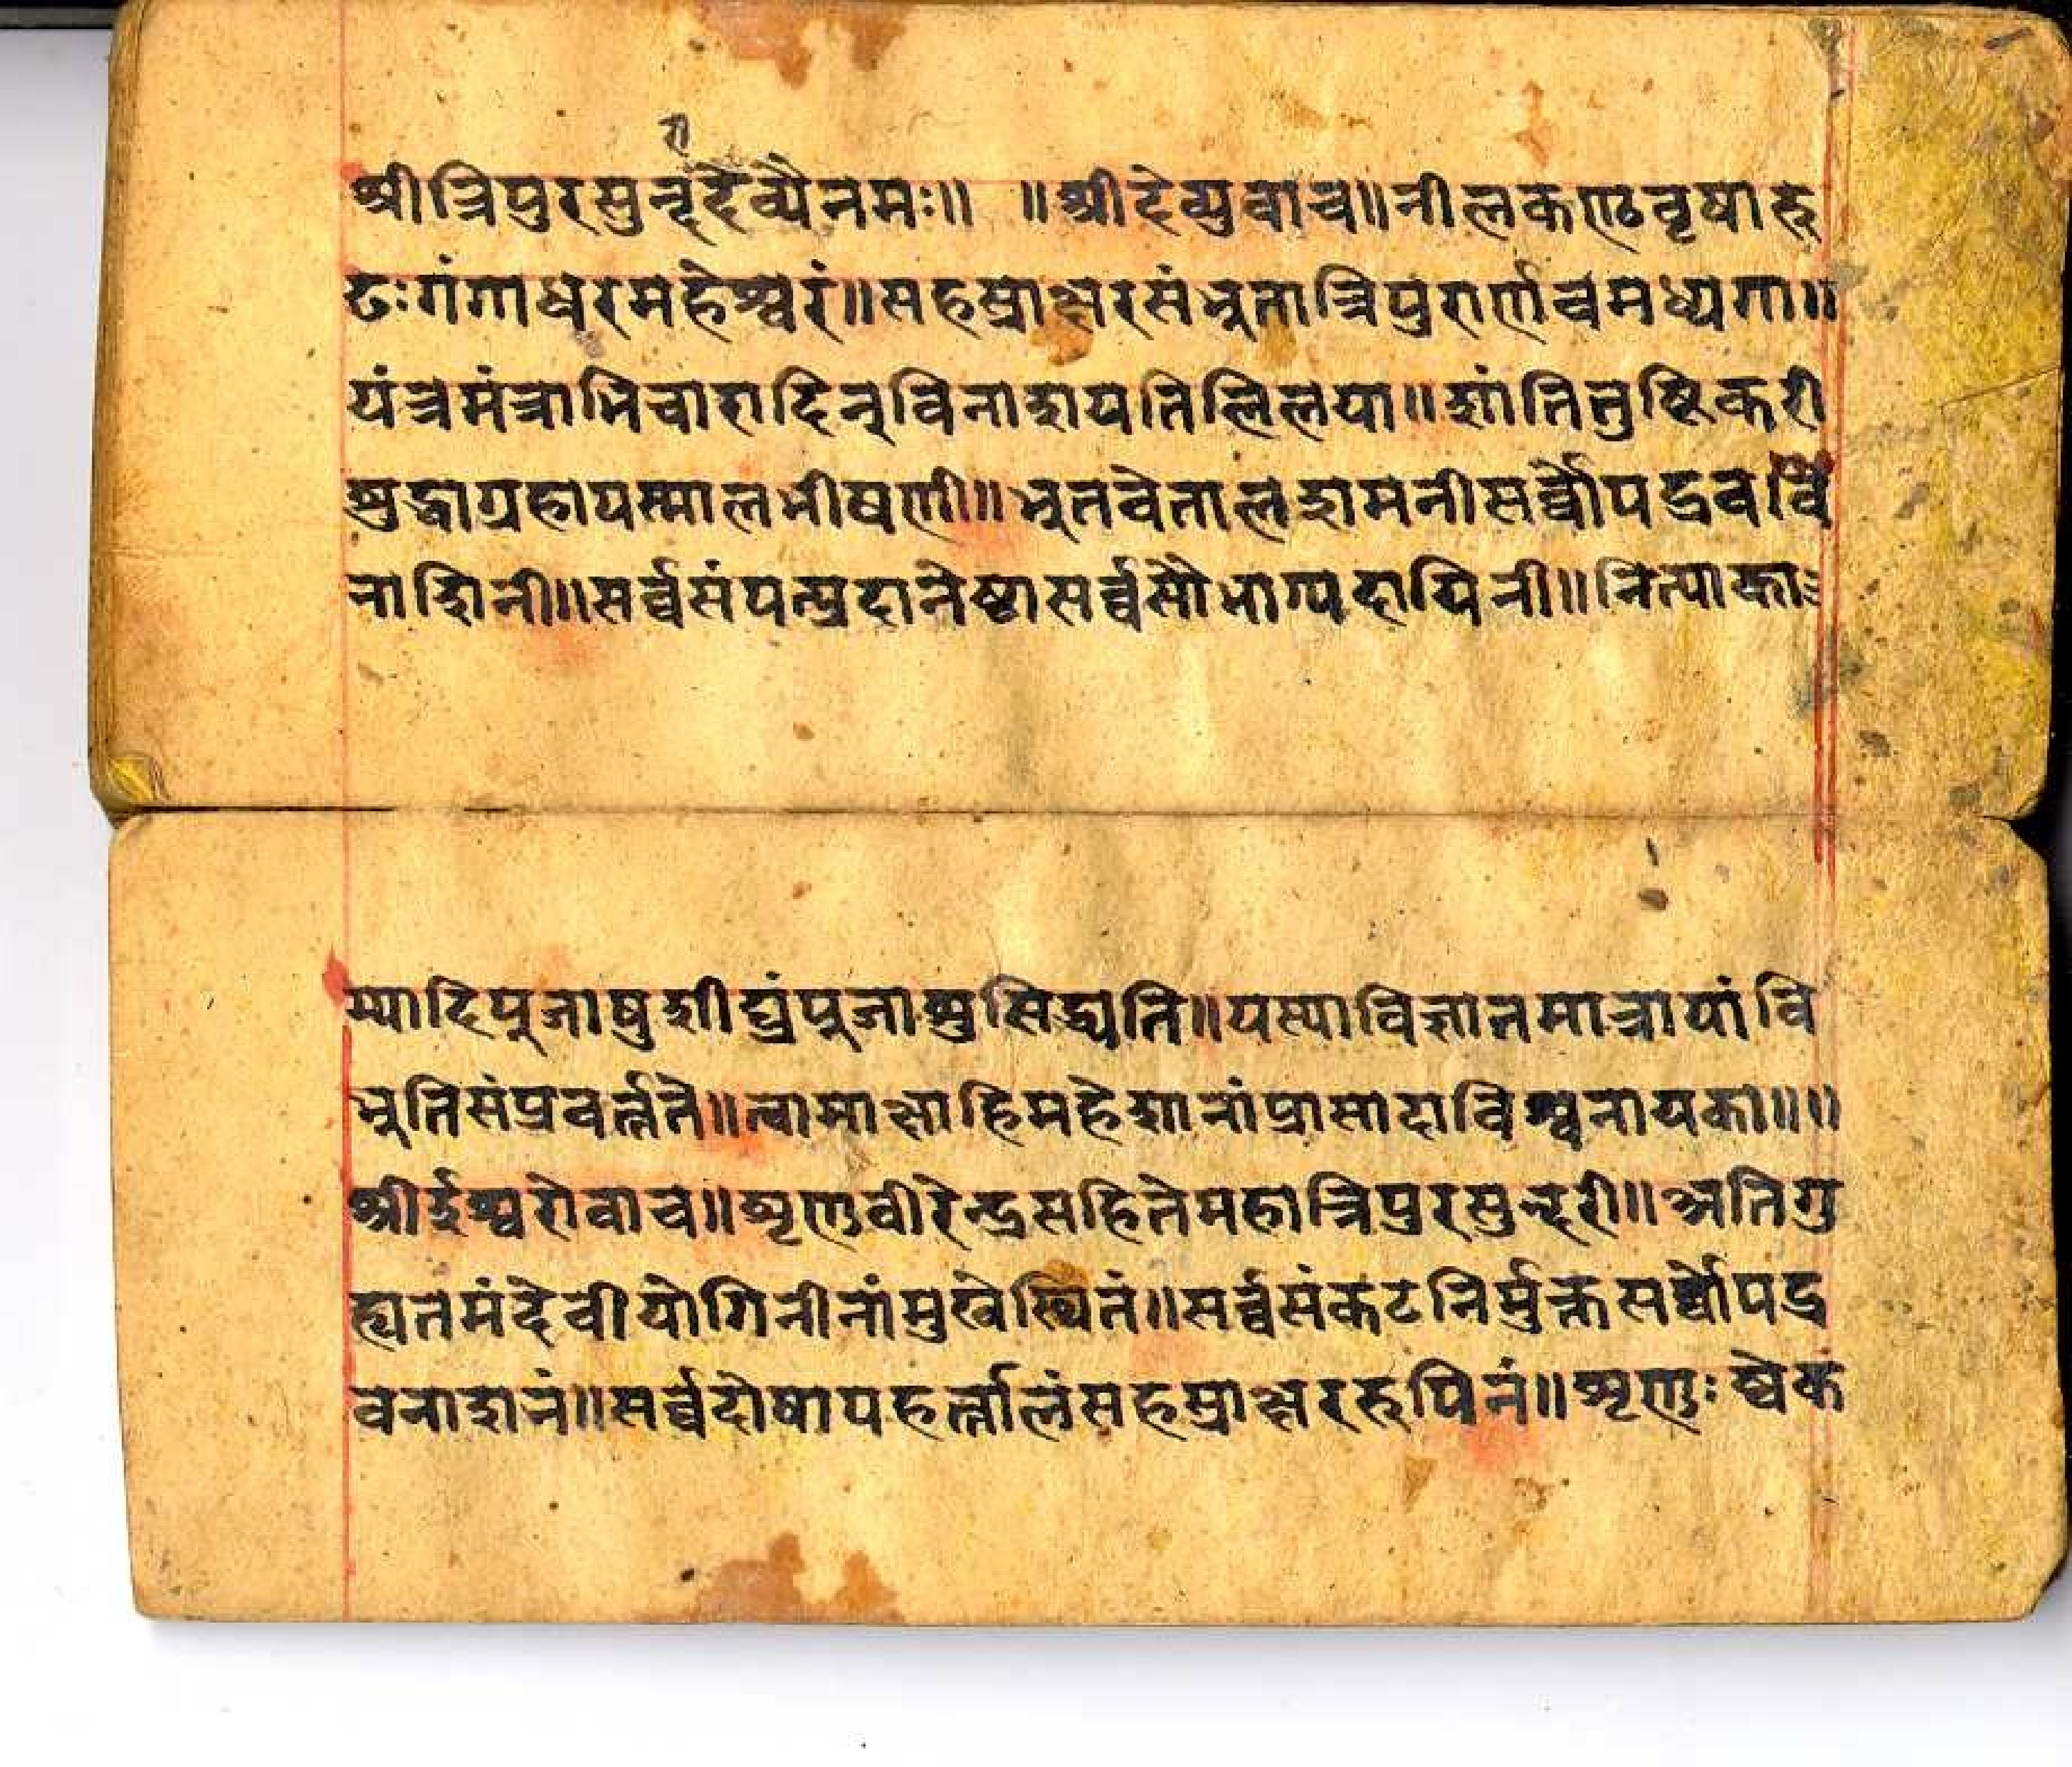 री
श्रीत्रिपुरसुन्दृदेव्यैनमः॥ ॥श्रीदेव्युवाच॥नीलकण्ठवृषारू
ढःगंगाधरमहेश्वरं॥सहस्राक्षरसंभूतात्रिपुरार्णाचमध्यगा॥
यंत्रमंत्राभिचारादिन्विनाशयतिलिलया॥शांतितुष्टिकरी
शुद्धाग्रहायस्मालभीषणी॥भूतवेतालशमनीसर्व्वोपद्रववि
नाशिनी॥सर्व्वसंपत्प्रदानेष्टासर्व्वसौभाग्यदायिनी॥नित्याका
म्यादिपूजाषुशीघ्रंपूजाशुसिद्ध्यति॥यस्याविज्ञानमात्रायांवि
भूतिसंप्रवर्त्तते॥त्वामाक्षाहिमहेशानांप्रासादाविश्वनायका॥॥
श्रीईश्वरोवाच॥शृणुवीरेन्द्रसहितेमहात्रिपुरसुन्दरी॥अतिगु
ह्यतमंदेवीयोगिनीनांमुखेस्थितं॥सर्व्वसंकटनिर्मुक्तसर्व्वोपद्र
वनाशनं॥सर्व्वदोषापहर्त्तालंसहस्राक्षररूपिनं॥शृणुः